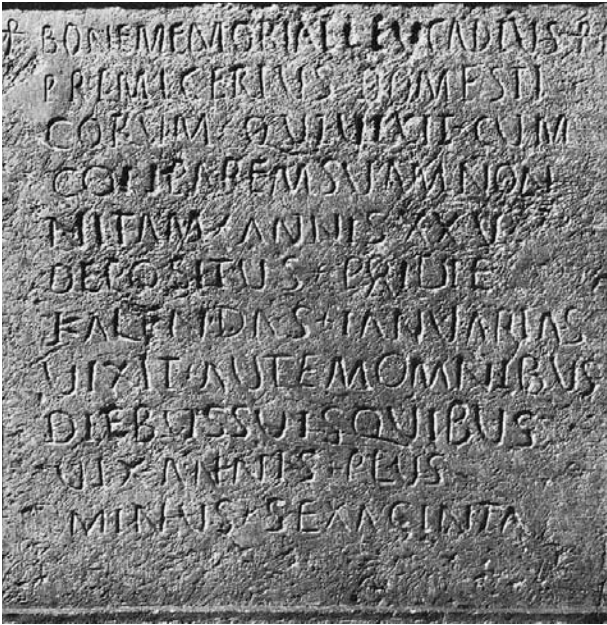 BONEMEMORIAELEVCADIUS
PRIMICERIUS DOMESTI
CORVM QUIUIXIT CUM
CONPAREMSUAMNON
NITAM ANNIS XXV
DEPOSITUS PRIDIE
KALENDAS IANUARIAS
UIXIT AUTEMOMNIBUS
DIEBUSSUISQUIBUS
UIX ANNIS PLUS
MINUS SEXAGINTA